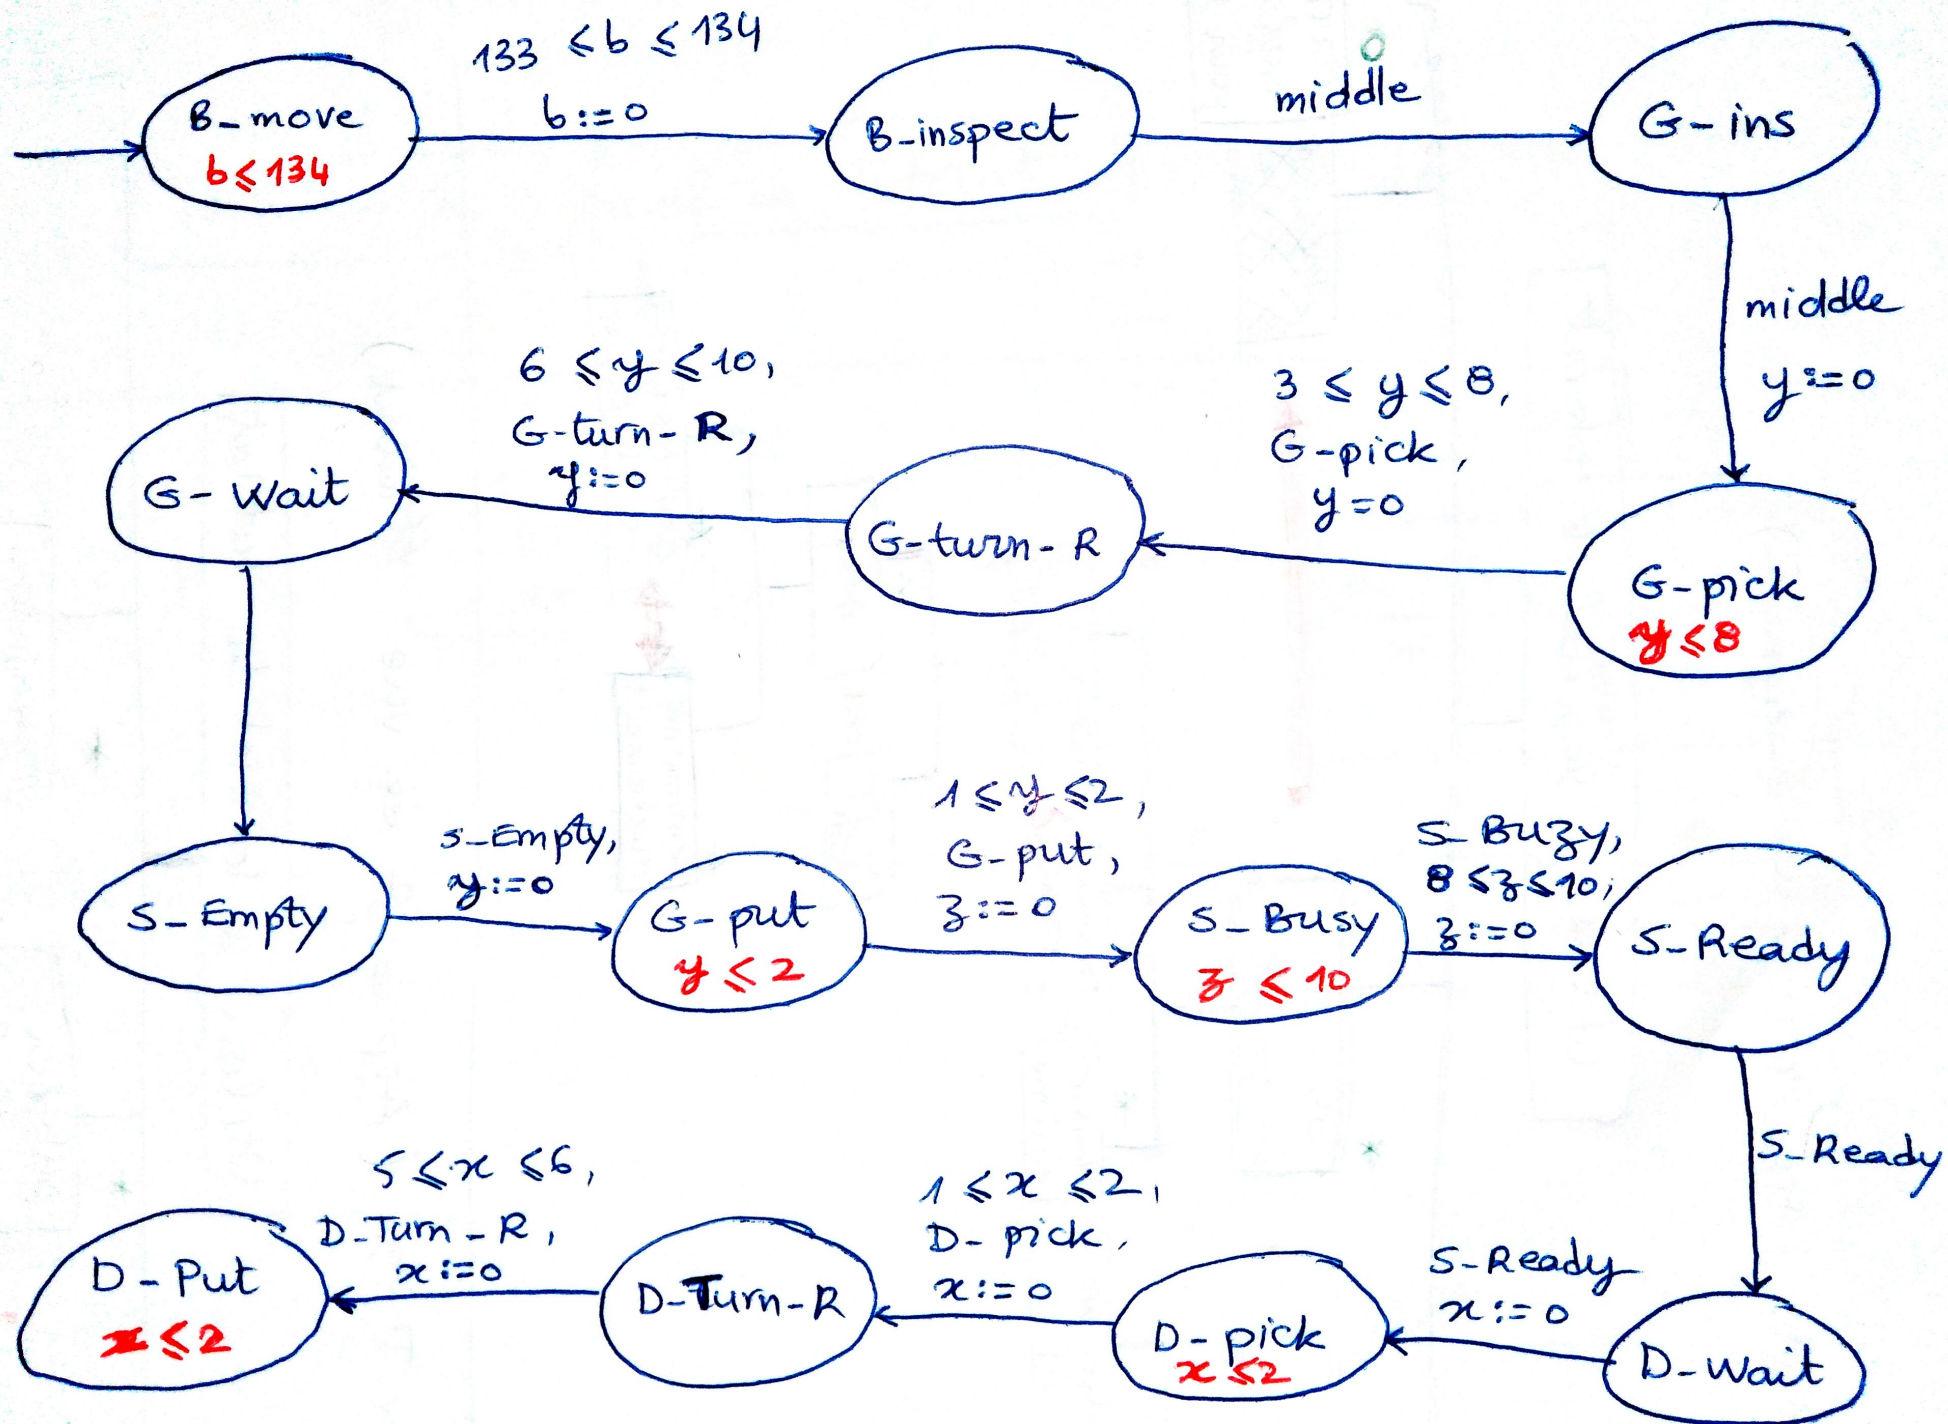 133 ⩽ b ⩽ 134
b := 0
B_move
b ⩽ 134
B-inspect
middle
G-ins
middle
y := 0
3 ⩽ y ⩽ 8,
G-pick,
y = 0
G-pick
y ⩽ 8
6 ⩽ y ⩽ 10,
G-turn-R,
y := 0
G-turn-R
G-Wait
S_Empty
S_Empty,
y := 0
G-put
y ⩽ 2
1 ⩽ y ⩽ 2,
G-put,
z := 0
S_Busy
z ⩽ 10
S_Buzy,
8 ⩽ z ⩽ 10,
z := 0
S-Ready
S_Ready
D-Wait
S-Ready
x := 0
D-pick
x ⩽ 2
1 ⩽ x ⩽ 2,
D-pick,
x := 0
D-Turn-R
5 ⩽ x ⩽ 6,
D-Turn-R,
x := 0
D-Put
x ⩽ 2